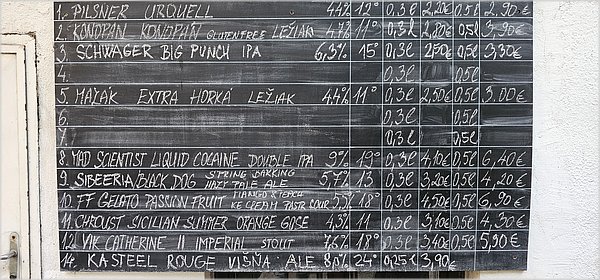 1. PILSNER URQUELL 4,4% 12° 0,3l 2,20€ 0,5l 2,90€
2. KONOPÁN KONOPÁN GLUTENFREE LEŽIAK 4,4% 11° 0,3l 2,80€ 0,5l 3,90€
3. SCHWAGER BIG PUNCH IPA 6,3% 15° 0,3l 2,50€ 0,5l 3,30€
4. 0,3l 0,5l
5. MAZÁK EXTRA HORKÁ LEŽIAK 4,4% 11° 0,3l 2,50€ 0,5l 3,00€
6. 0,3l 0,5l
7. 0,3l 0,5l
8. MAD SCIENTIST LIQUID COCAINE DOUBLE IPA 9% 19° 0,3l 4,10€ 0,5l 6,40€
9. SIBEERIA BLACK DOG STRING BAKKING HAZY PALE ALE 5,7% 13 0,3l 3,20€ 0,5l 4,20€
10. FF GELATO PASSION FRUIT MANGO & PEACH ICE CREAM PASTR SOUR 5,5% 18° 0,3l 4,50€ 0,5l 6,90€
11. CHROUST SICILIAN SUMMER ORANGE GOSE 4,3% 11 0,3l 3,10€ 0,5l 4,30€
12. VIK CATHERINE II IMPERIAL STOUT 7,6% 18° 0,3l 3,40€ 0,5l 5,90€
14. KASTEEL ROUGE VIŠŇA ALE 8,0% 24° 0,25l 3,90€